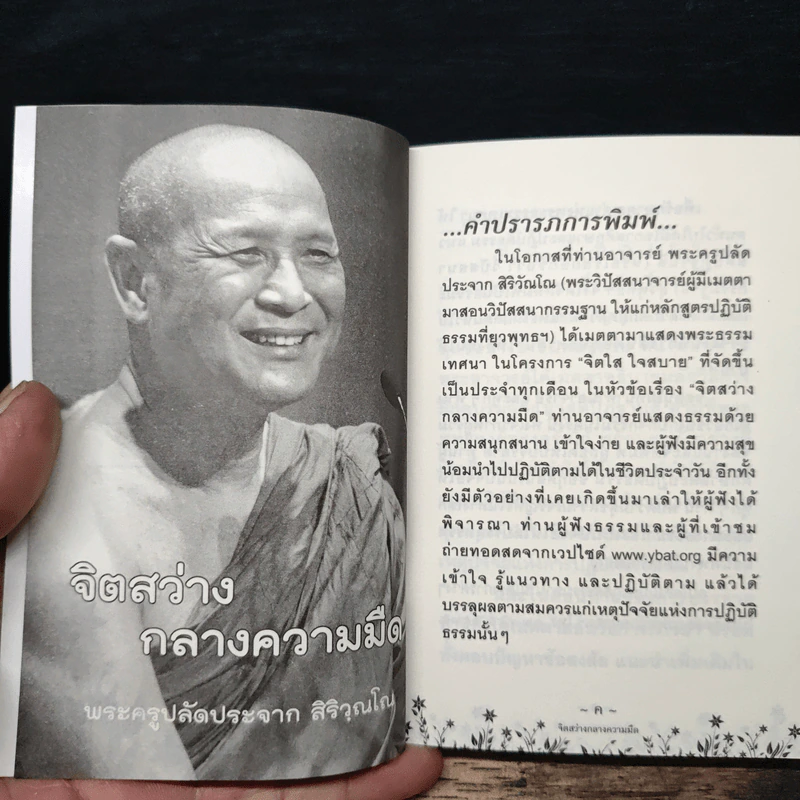 จิตสว่าง
กลางความมืด
พระครูปลัดประจาก สิริวุณโณ
...คำปรารภการพิมพ์...
ในโอกาสที่ท่านอาจารย์ พระครูปลัด
ประจาก สิริวัณโณ (พระวิปัสสนาจารย์ผู้มีเมตตา
มาสอนวิปัสสนากรรมฐาน ให้แก่หลักสูตรปฏิบัติ
ธรรมที่ยุวพุทธฯ) ได้เมตตามาแสดงพระธรรม
เทศนา ในโครงการ “จิตใส ใจสบาย” ที่จัดขึ้น
เป็นประจำทุกเดือน ในหัวข้อเรื่อง “จิตสว่าง
กลางความมืด” ท่านอาจารย์แสดงธรรมด้วย
ความสนุกสนาน เข้าใจง่าย และผู้ฟังมีความสุข
น้อมนำไปปฏิบัติตามได้ในชีวิตประจำวัน อีกทั้ง
ยังมีตัวอย่างที่เคยเกิดขึ้นมาเล่าให้ผู้ฟังได้
พิจารณา ท่านผู้ฟังธรรมและผู้ที่เข้าชม
ถ่ายทอดสดจากเวปไซด์ www.ybat.org มีความ
เข้าใจ รู้แนวทาง และปฏิบัติตาม แล้วได้
บรรลุผลตามสมควรแก่เหตุปัจจัยแห่งการปฏิบัติ
ธรรมนั้นๆ
~ ค ~
จิตสว่างกลางความมืด